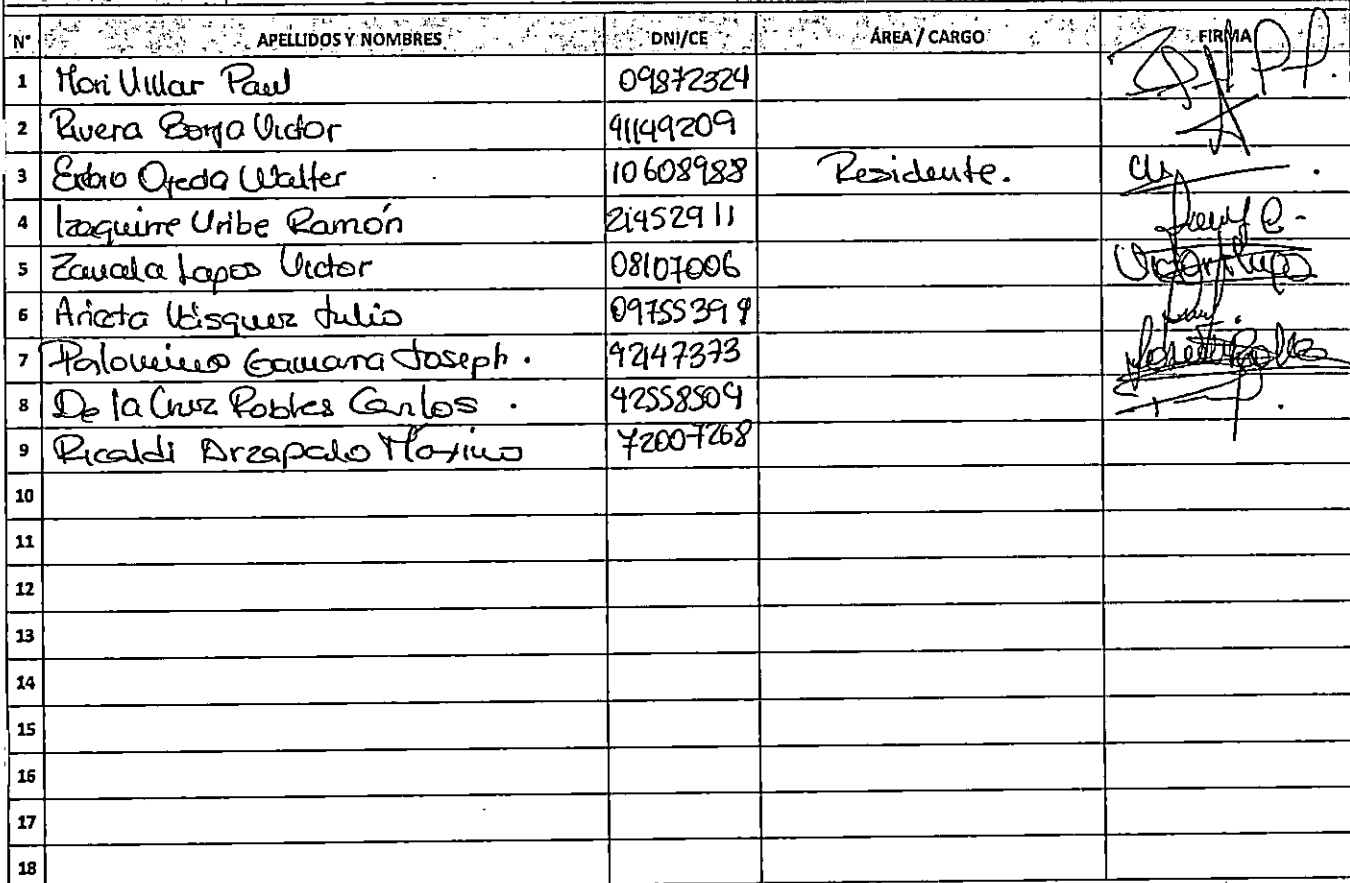 N° APELLIDOS Y NOMBRES DNI/CE ÁREA / CARGO FIRMA
1 Mori Villar Paul 09872324
2 Rivera Borja Victor 41149209
3 Ojeda Walter 10608988 Residente.
4 Izaguirre Uribe Ramón 21452911
5 Zavala Lapos Victor 08107006
6 Arieta Vásquez Julio 09755394
7 Palomino Gamarra Joseph. 42147373
8 De la Cruz Robles Carlos. 42558509
9 Ricaldi Arzapalo Maximo 72007268
10
11
12
13
14
15
16
17
18